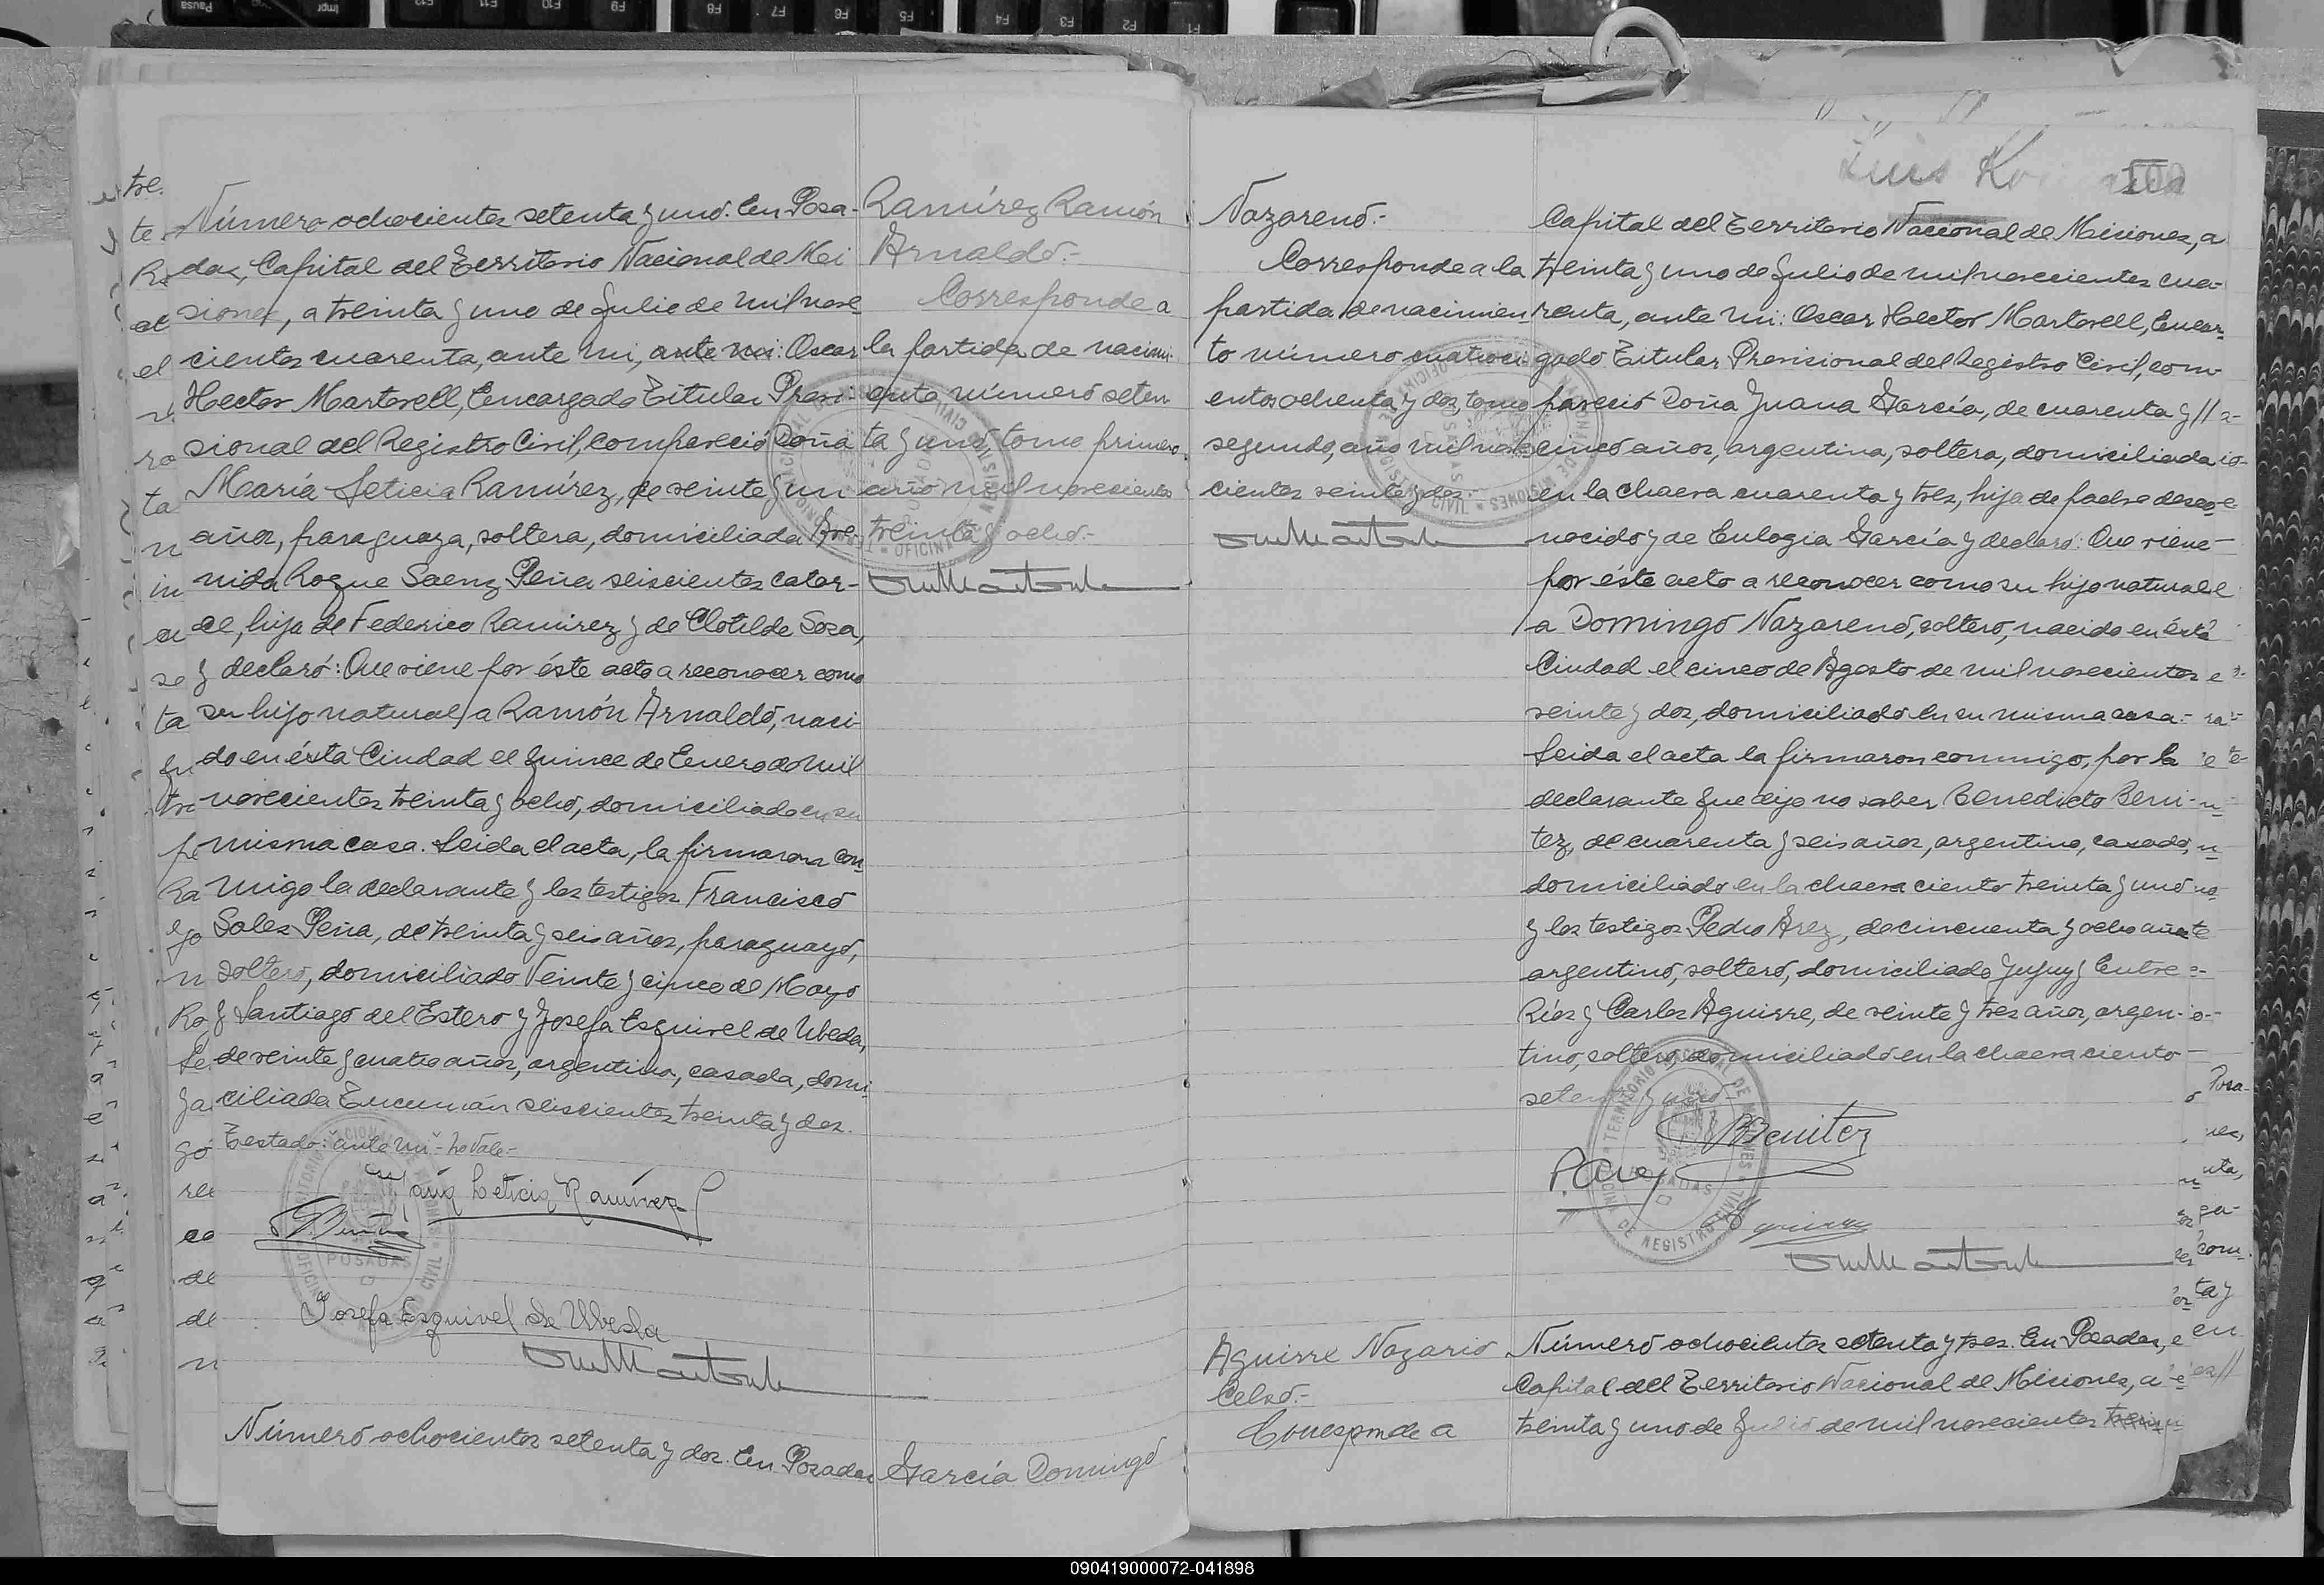 Número ochocientos setenta y uno. En Posa-
das, Capital del Territorio Nacional de Mi
siones, a treinta y uno de Julio de mil nove
cientos cuarenta, ante mi, ante mi: Oscar
Hector Martorell, Encargado Titular Provi-
sional del Registro Civil, compareció Doña
María Leticia Ramírez, de veinte y un
años, paraguaya, soltera, domiciliada Ave
nida Roque Saenz Peña seiscientos cator-
ce, hija de Federico Ramirez y de Clotilde Sosa,
y declaró: Que viene por éste acto a reconocer como
su hijo natural a Ramón Arnaldo, naci-
do en ésta Ciudad el quince de Enero de mil
novecientos treinta y ocho, domiciliado en su
misma casa. Leida el acta, la firmaron con
migo la declarante y los testigos Francisco
Soles Peña, de treinta y seis años, paraguayo,
soltero, domiciliado Veinte y cinco de Mayo
y Santiago del Estero y Josefa Esquivel de Ubeda,
de veinte y cuatro años, argentina, casada, domi-
ciliada Tucumán seiscientos treinta y dos.
Testado: "ante mi"- no vale-
María Leticia Ramírez
Josefa Esquivel de Ubeda
Número ochocientos setenta y dos. En Posadas
Ramírez Ramón
Arnaldo.-
Corresponde a
la partida de nacimi-
ento número seten
ta y uno tomo primero
año mil novecientos
treinta y ocho.-
García Domingo
Nazareno.-
Corresponde a la
partida de nacimien-
to número cuatroci-
entos ochenta y dos, tomo
segundo, año mil nove-
cientos veinte y dos.
Capital del Territorio Nacional de Misiones, a
treinta y uno de Julio de mil novecientos cua-
renta, ante mi: Oscar Hector Martorell, Encar-
gado Titular Provisional del Registro Civil, com-
pareció Doña Juana García, de cuarenta y //
cinco años, argentina, soltera, domiciliada
en la chacra cuarenta y tres, hija de padre desco-
nocido y de Eulogia García y declaró: Que viene
por éste acto a reconocer como su hijo natural
a Domingo Nazareno, soltero, nacido en ésta
Ciudad el cinco de Agosto de mil novecientos
veinte y dos, domiciliado en su misma casa.-
Leida el acta la firmaron conmigo, por la
declarante que dijo no saber Benedicto Beni-
tez, de cuarenta y seis años, argentino, casado,
domiciliado en la chacra ciento treinta y uno
y los testigos Pedro Arez, de cincuenta y ocho años
argentino, soltero, domiciliado Jujuy y Entre
Ríos y Carlos Aguirre, de veinte y tres años, argen-
tino, soltero, domiciliado en la chacra ciento
setenta y uno.-
BBenitez
P. Arez
Aguirre
Aguirre Nazario
Celso.-
Corresponde a
Número ochocientos setenta y tres. En Posadas,
Capital del Territorio Nacional de Misiones, a
treinta y uno de Julio de mil novecientos
090419000072-041898